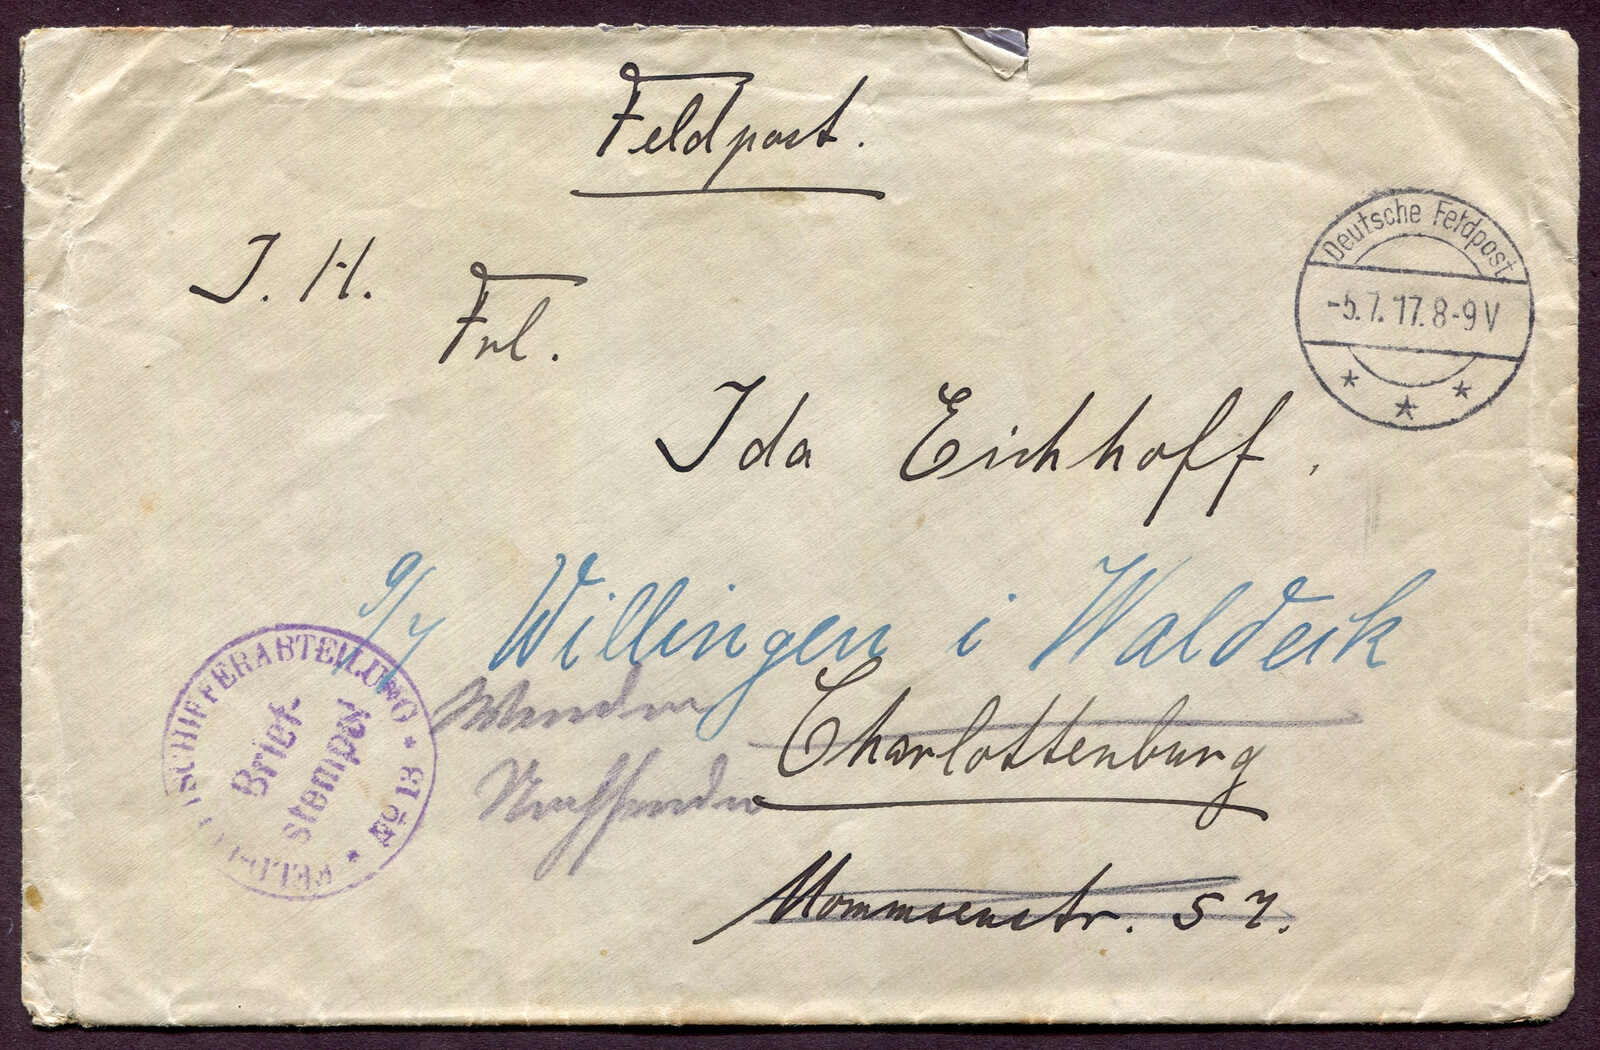 Feldpost.
J. H.
Frl.
Deutsche Feldpost
-5.7.17.8-9V
* * *
Ida Eichhoff.
9/7 Willingen i Waldeck
Wenden
Charlottenburg
Nachsenden
Mommsenstr. 57.
FELD-LUFTSCHIFFERABTEILUNG * No 13 *
Brief-
stempel